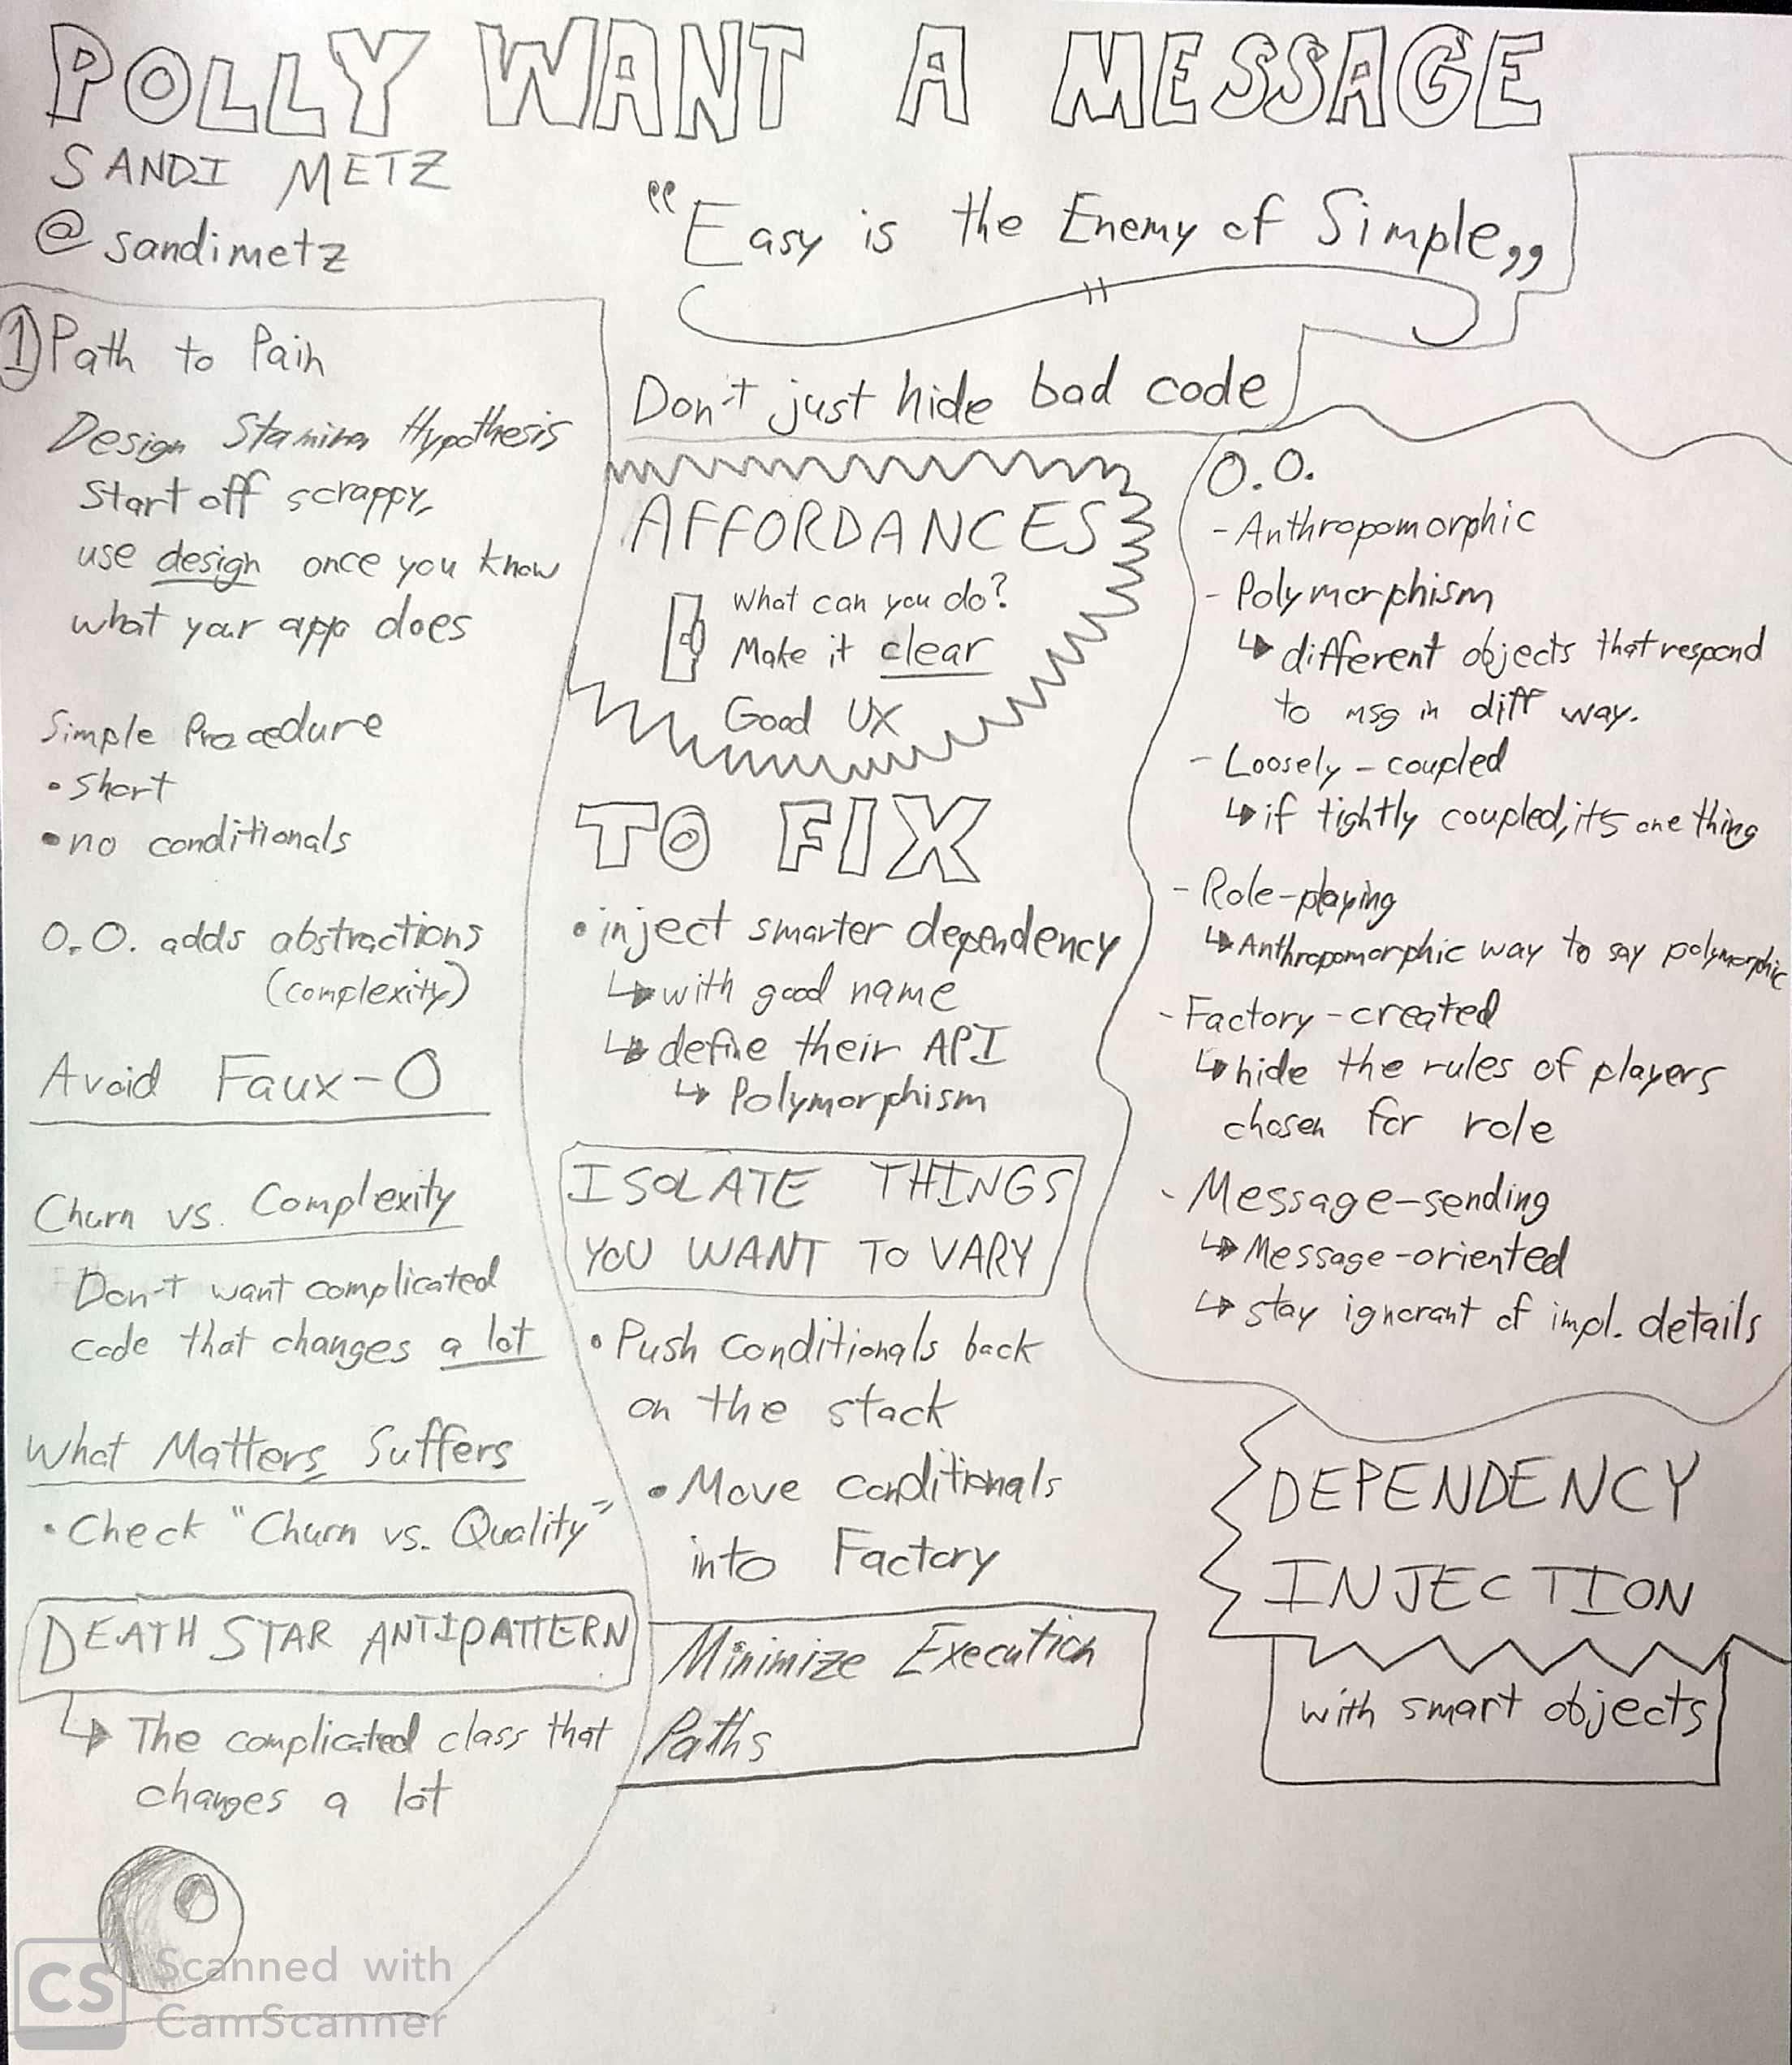 POLLY WANT A MESSAGE
SANDI METZ
@sandimetz
"Easy is the Enemy of Simple,,
Don't just hide bad code
① Path to Pain
Design Stamina Hypothesis
Start off scrappy,
use design once you know
what your app does
Simple Procedure
• short
• no conditionals
O.O. adds abstractions
(complexity)
Avoid Faux-O
Churn vs. Complexity
Don't want complicated
code that changes a lot
What Matters Suffers
• Check "Churn vs. Quality"
DEATH STAR ANTIPATTERN
↳ The complicated class that
changes a lot
AFFORDANCES
What can you do?
Make it clear
Good UX
TO FIX
• inject smarter dependency
↳ with good name
↳ define their API
↳ Polymorphism
ISOLATE THINGS
YOU WANT TO VARY
• Push conditionals back
on the stack
• Move conditionals
into Factory
Minimize Execution
Paths
O.O.
- Anthropomorphic
- Polymorphism
↳ different objects that respond
to msg in diff way.
- Loosely-coupled
↳ if tightly coupled, it's one thing
- Role-playing
↳ Anthropomorphic way to say polymorphic
- Factory-created
↳ hide the rules of players
chosen for role
- Message-sending
↳ Message-oriented
↳ stay ignorant of impl. details
DEPENDENCY
INJECTION
with smart objects
CS
Scanned with
CamScanner